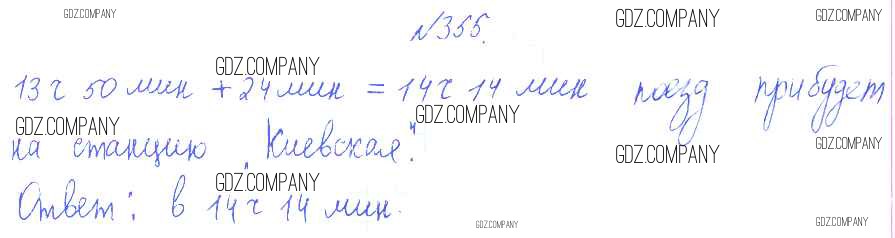 GDZ.COMPANY
GDZ.COMPANY
GDZ.COMPANY
№355.
GDZ.COMPANY
13 ч 50 мин + 24 мин = 14 ч 14 мин поезд прибудет
GDZ.COMPANY
GDZ.COMPANY
на станцию „Киевская".
GDZ.COMPANY
GDZ.COMPANY
GDZ.COMPANY
Ответ: в 14 ч 14 мин.
GDZ.COMPANY
GDZ.COMPANY